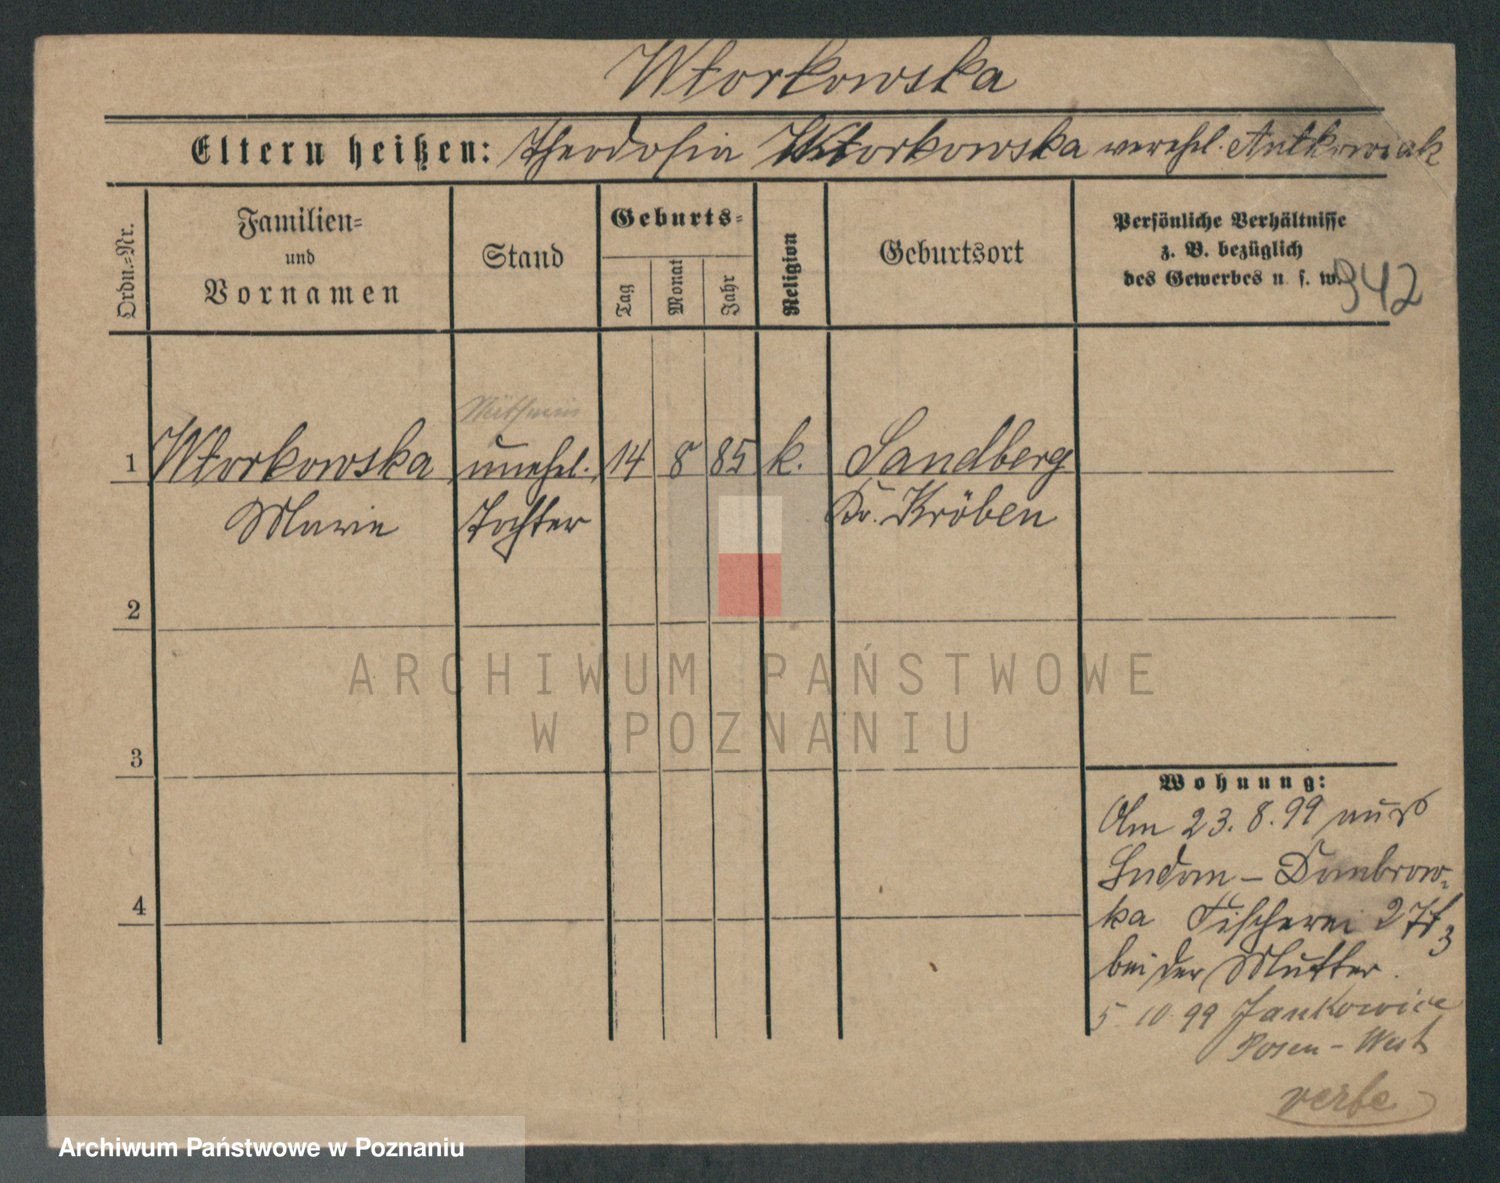 Wtorkowska
Eltern heißen: Theodosia Wtorkowska verehl. Antkowiak
Ordn.=Nr.
Familien=
und
Vornamen
Stand
Geburts=
Tag
Monat
Jahr
Religion
Geburtsort
Persönliche Verhältnisse
z. B. bezüglich
des Gewerbes u. s. w.
942
1 Wtorkowska unehel. 14 8 85 k. Sandberg
Marie Tochter Kr. Kröben
2
3
4
Wohnung:
Am 23. 8. 99 aus
Ludom - Dombrow-
ka Fischerei 27
bei der Mutter.
5. 10 99 Jankowice
Posen - West
ARCHIWUM PAŃSTWOWE
W POZNANIU
Archiwum Państwowe w Poznaniu